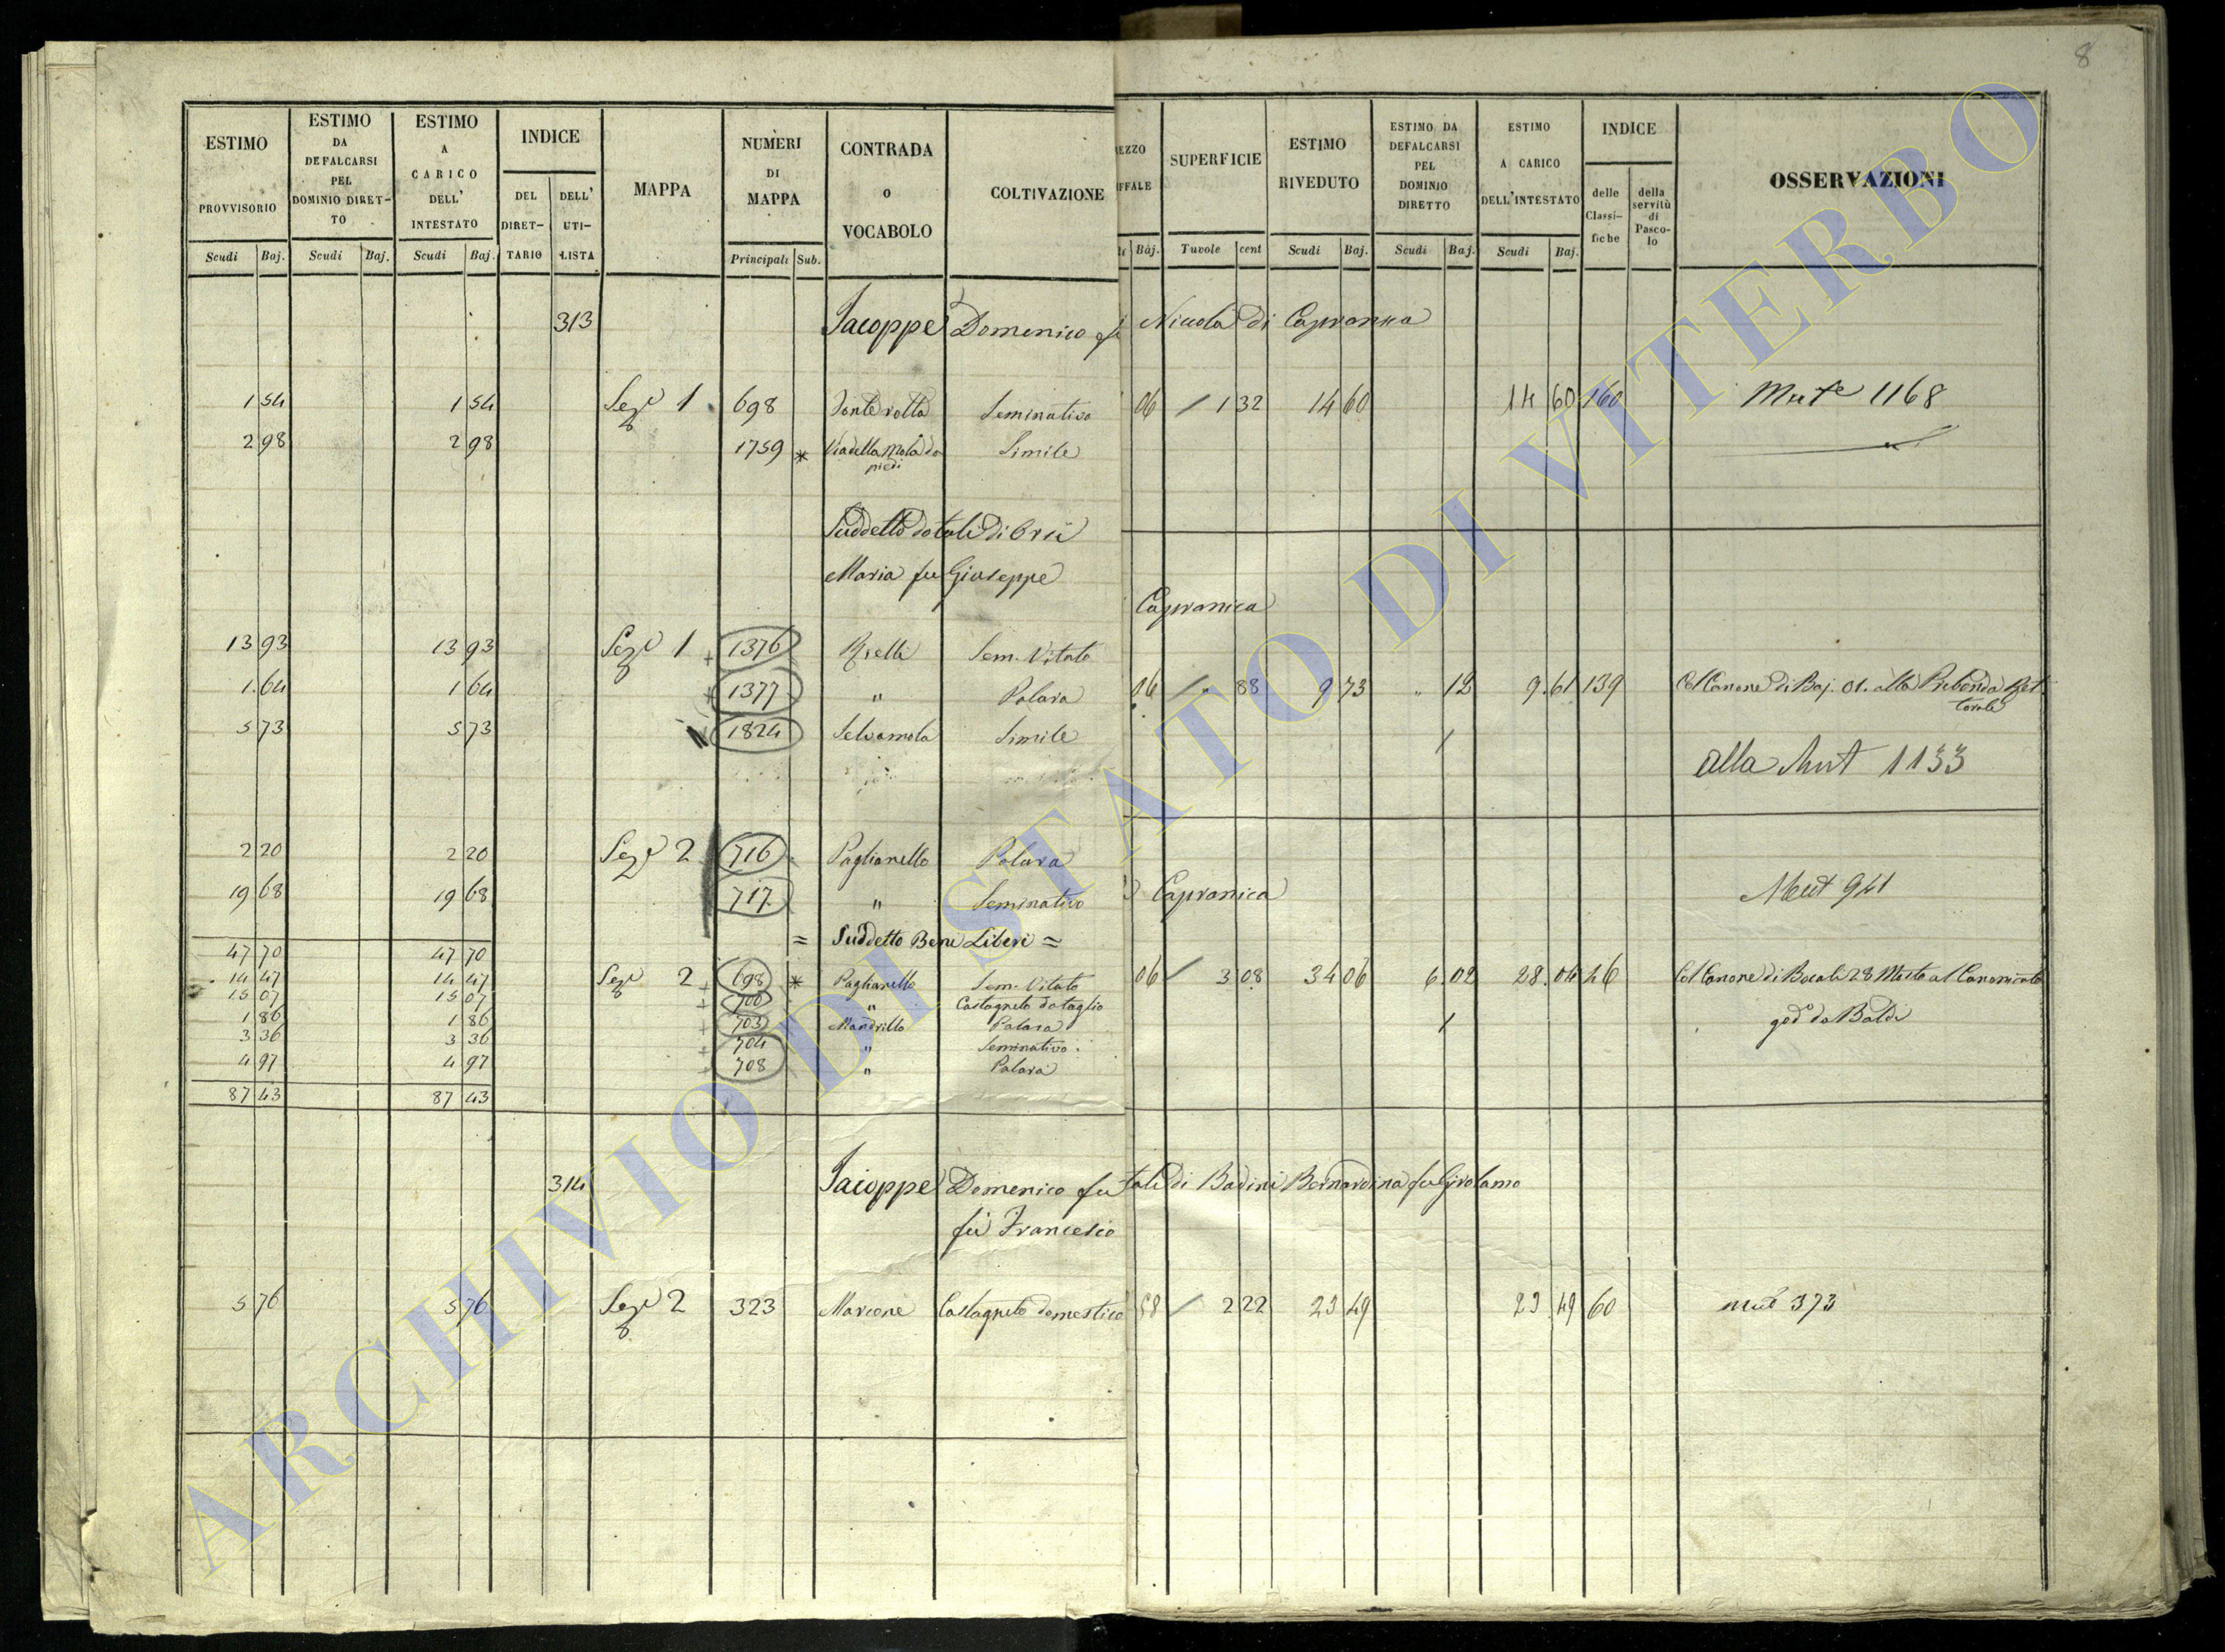 8
ESTIMO PROVVISORIO Scudi Baj.
ESTIMO DA DEFALCARSI PEL DOMINIO DIRET- TO Scudi Baj.
ESTIMO A CARICO DELL' INTESTATO Scudi Baj.
INDICE DEL DIRET- TARIO DELL' UTI- LISTA
MAPPA
NUMERI DI MAPPA Principali Sub.
CONTRADA O VOCABOLO
COLTIVAZIONE
313 Jacoppe Domenico fu
1 54 1 54 Sez.e 1 698 Ponte rotto Seminativo
2 98 2 98 1759 * Via della Mola da piedi Simile
Suddetto dotali di Orsi
Maria fu Giuseppe
13 93 13 93 Sez.e 1 1376 Sem. Vitato
1.64 1 64 1377 " Palara
5 73 5 73 1824 Selvamola Simile
2 20 2 20 Sez.e 2 716 Paglianello Palara
19 68 19 68 717 " Seminativo
= Suddetto Beni Liberi =
47 70 47 70
14 47 14 47 Sez.e 2 698 * Paglianello Sem. Vitato
15 07 15 07 700 " Castagneto da taglio
1 86 1 86 703 Mandrillo Palara
3 36 3 36 704 " Seminativo
4 97 4 97 708 " Palara
87 43 87 43
314 Jacoppe Domenico fu
fu Francesco
5 76 5 76 Sez.e 2 323 Marcone Castagneto domestico
EZZO IFFALE Baj.
SUPERFICIE Tavole cent
ESTIMO RIVEDUTO Scudi Baj.
ESTIMO DA DEFALCARSI PEL DOMINIO DIRETTO Scudi Baj.
ESTIMO A CARICO DELL'INTESTATO Scudi Baj.
INDICE delle Classi- fiche della servitù di Pasco- lo
OSSERVAZIONI
Nicola di Capranica
06 / 1 32 14 60 14 60 160 Mut.e 1168
Capranica
06 / " 88 9 73 " 12 9.61 139 Col Canone di Baj. 01. alla Prebenda Ret
torale
alla Mut 1133
Capranica
Mut 941
06 / 3 08 34 06 6.02 28.04 26 Col Canone di Bocali 28 Mosto al Canonicato
god.o da Baldi
tali di Badini Bernardina fu Girolamo
58 / 2 22 29 49 29 49 60 mut 373
ARCHIVIO DI STATO DI VITERBO